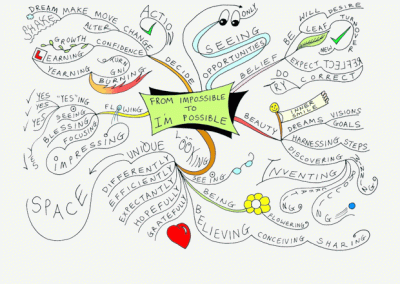 FROM IMPOSSIBLE
TO
I'M POSSIBLE
DECIDE
ACTION
DREAM MAKE MOVE
SHAKE
ALTER CHANGE
GROWTH CONFIDENCE
LEARNING
L
YEARNING
BURNING
SEEING
ONLY
OPPORTUNITIES
BELIEF
BE
LEAF
WILL DESIRE
TURNOVER
NEW
REFLECT
DO
TRY
CORRECT
BEAUTY
INNER
SMILE
DREAMS VISIONS
GOALS
HARNESSING STEPS
DISCOVERING
INVENTING
LOOKING
SEEING
BEING
FLOWERING
BELIEVING
CONCEIVING
SHARING
UNIQUE
DIFFERENTLY
EFFICIENTLY
EXPECTANTLY
HOPEFULLY
GRATEFULLY
SPACE
FLOWING
YES
YES
YES
YES
"YES"ING
SEEING
BLESSING
FOCUSING
IMPRESSING